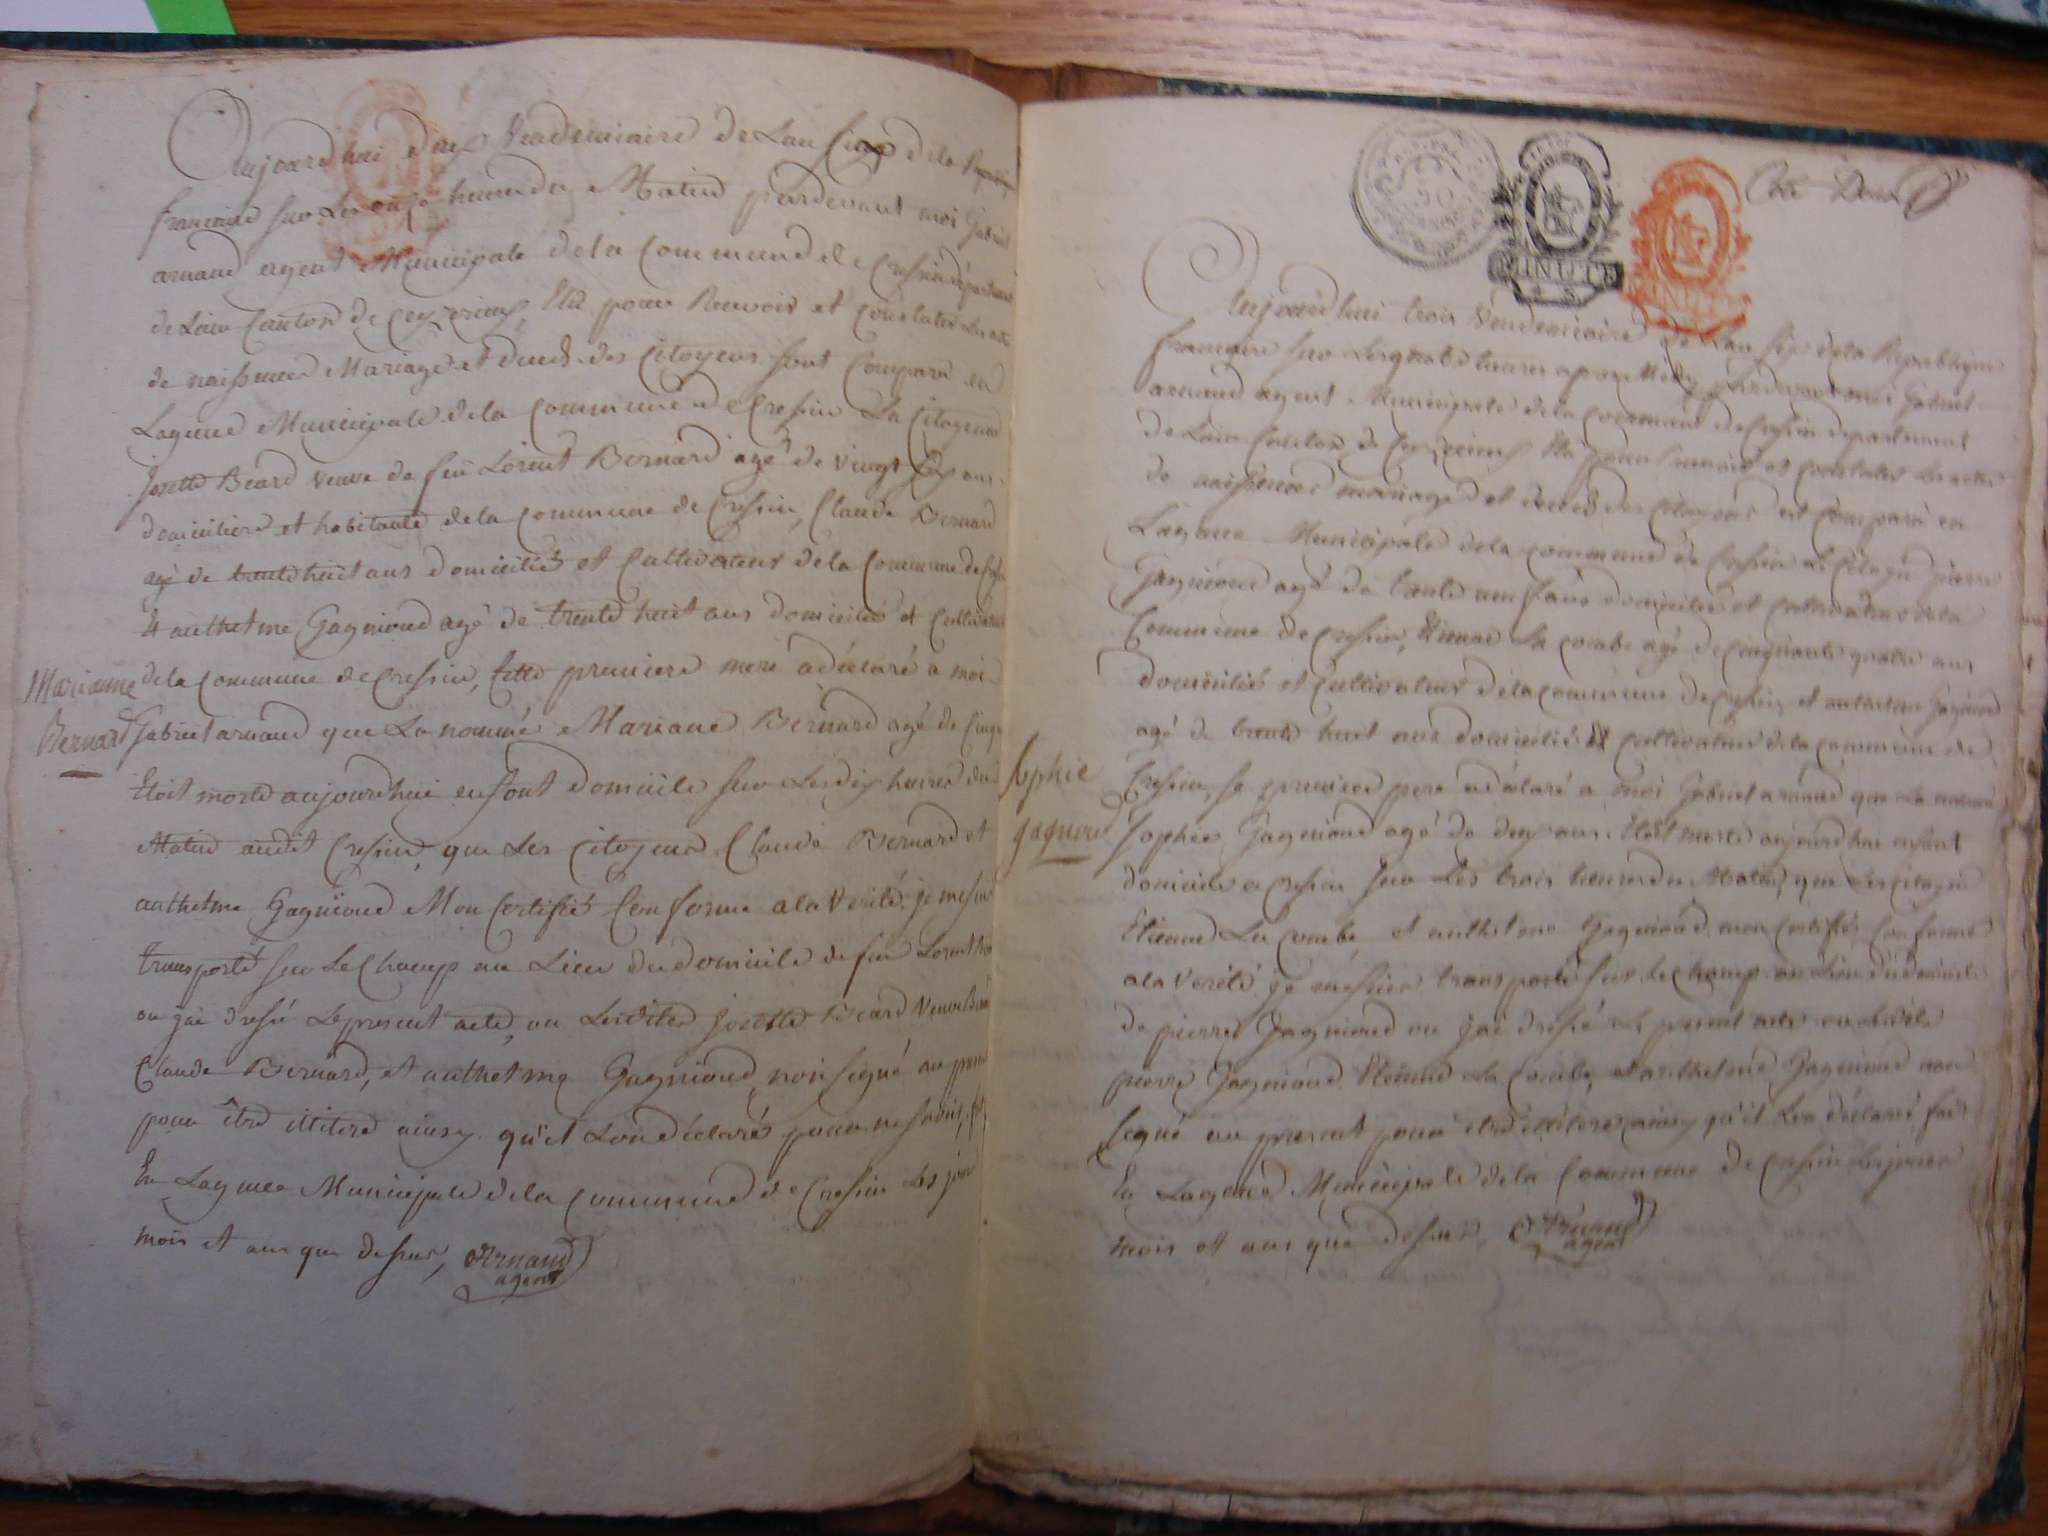 Aujourdhui dix Vendemiaire de Lan six de la
francaise sur Les onze heures du Matin pardevant moi Gabriel
arnaud agent Municipale de la Commune de Cressin departement
de Lain Canton de Ceyzerieux Elu pour Recevoir et Constater Les actes
de naissences Mariage et deceds des Citoyens sont Comparu en
Lagence Municipale de la Commune de Cressin La Citoyenne
Josette Beard veuve de feu Lorent Bernard agé de vingt six ans
domiciliere et habitante de la Commune de Cressin, Claude Bernard
agé de trente huit ans domicilié et Cultivateur de la Commune de
& anthelme Gagnioud agé de trente huit ans domicilié et Cultivateur
de la Commune de Cressin, Cette premiere mere a déclaré a moi
Marianne
Bernard
Gabriel arnaud que La nommé Mariane Bernard agé de Cinq
Etoit morte aujourdhui en sont domicile sur Les dix heures du
Matin audit Cressin, que Les Citoyens Claude Bernard et
anthelme Gagnioud Mon Certifié Conforme a la Verité. je me suis
transporté sur Le Champ au Lieu du domicile de feu Lorent
ou jai dressé Le present acte, ou Lesdites Josette Beard Veuve
Claude Bernard, et anthelme Gagnioud non signé au present
pour être illitere ainsy qu'il Lon déclaré pour ne savoir,
En Lagence Municipale de la Commune de Cressin Les jour
mois et ans que dessus, Arnaud
agent
Cote Deux
Aujourdhui trois Vendemiaire de Lan six de la Republique
francaise sur Les quatre heures apres Midy pardevant moi Gabriel
arnaud agent Municipale de la Commune de Cressin departement
de Lain Canton de Ceyzerieux Elu pour Recevoir et Constater Les actes
de naissences mariage et deceds des Citoyens est Comparu en
Lagence Municipale de la Commune de Cressin Le Citoyen pierre
Gagnioud agé de domicilié et Cultivateur de la
Commune de Cressin, Etienne La Combe agé de Cinquante quatre ans
domicilié et Cultivateur de la Commune de Cressin et anthelme Gagnioud
agé de trente huit ans domicilié et Cultivateur de la Commune de
Cressin, Le premier pere a déclaré a moi Gabriel arnaud que La nommé
Sophie
gagnoud
Sophie Gagnioud agé de deux ans Etoit morte aujourdhui en sont
domicile a Cressin sur Les trois heures du Matin, que Les Citoyens
Etienne La Combe et anthelme Gagnioud mon Certifié Conforme
a la Verité je me suis transporté sur Le Champ au Lieu du domicile
de pierre Gagnioud ou jai dressé Le present acte
pierre Gagnioud Etienne La Combe, et anthelme Gagnioud non
signé au present pour être illitere ainsy qu'il Lon déclaré fait
En Lagence Municipale de la Commune de Cressin Les jours
mois et ans que dessus, Arnaud
agent
MINUTE
MINUTE